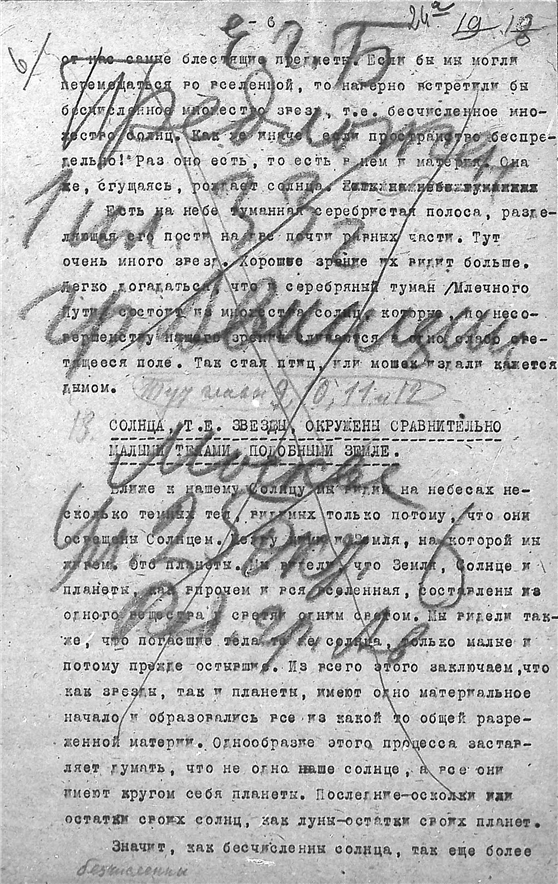 - 6 -
24а 19 18
6/
Е Г. Б
от нас самые блестящие предметы. Если бы мы могли
перемещаться во вселенной, то наверно встретили бы
бесчисленное множество звезд, т.е. бесчисленное мно-
жество солнц. Как же иначе, если пространство беспре-
дельно! Раз оно есть, то есть в нем и материя. Она
же, сгущаясь, рождает солнца.
Есть на небе туманная серебристая полоса, разде-
ляющая его почти на две почти равных части. Тут
очень много звезд. Хорошее зрение их видит больше.
Легко догадаться, что и серебряный туман /Млечного
Пути/ состоит из множества солнц, которые, по несо-
вершенству нашего зрения, сливаются в одно слабо све-
тящееся поле. Так стая птиц, или мошек издали кажется
дымом.
Тут главы 9, 10, 11 и 12
13. СОЛНЦА, Т.Е. ЗВЕЗДЫ, ОКРУЖЕНЫ СРАВНИТЕЛЬНО
МАЛЫМИ ТЕЛАМИ, ПОДОБНЫМИ ЗЕМЛЕ.
Москва
Ближе к нашему Солнцу мы видим на небесах не-
сколько темных тел, видимых только потому, что они
освещены Солнцем. Между ними и Земля, на которой мы
живем. Это планеты. Мы видели, что Земля, Солнце и
планеты, как впрочем и вся вселенная, составлены из
одного вещества и светят одним светом. Мы видели так-
же, что погасшие тела те же солнца, только малые и
потому прежде остывшие. Из всего этого заключаем, что
как звезды, так и планеты, имеют одно материальное
начало и образовались все из какой то общей разре-
женной материи. Однообразие этого процесса застав-
ляет думать, что не одно наше солнце, а все они
имеют кругом себя планеты. Последние-осколки или
остатки своих солнц, как луны-остатки своих планет.
Значит, как бесчисленны солнца, так еще более
бесчисленны